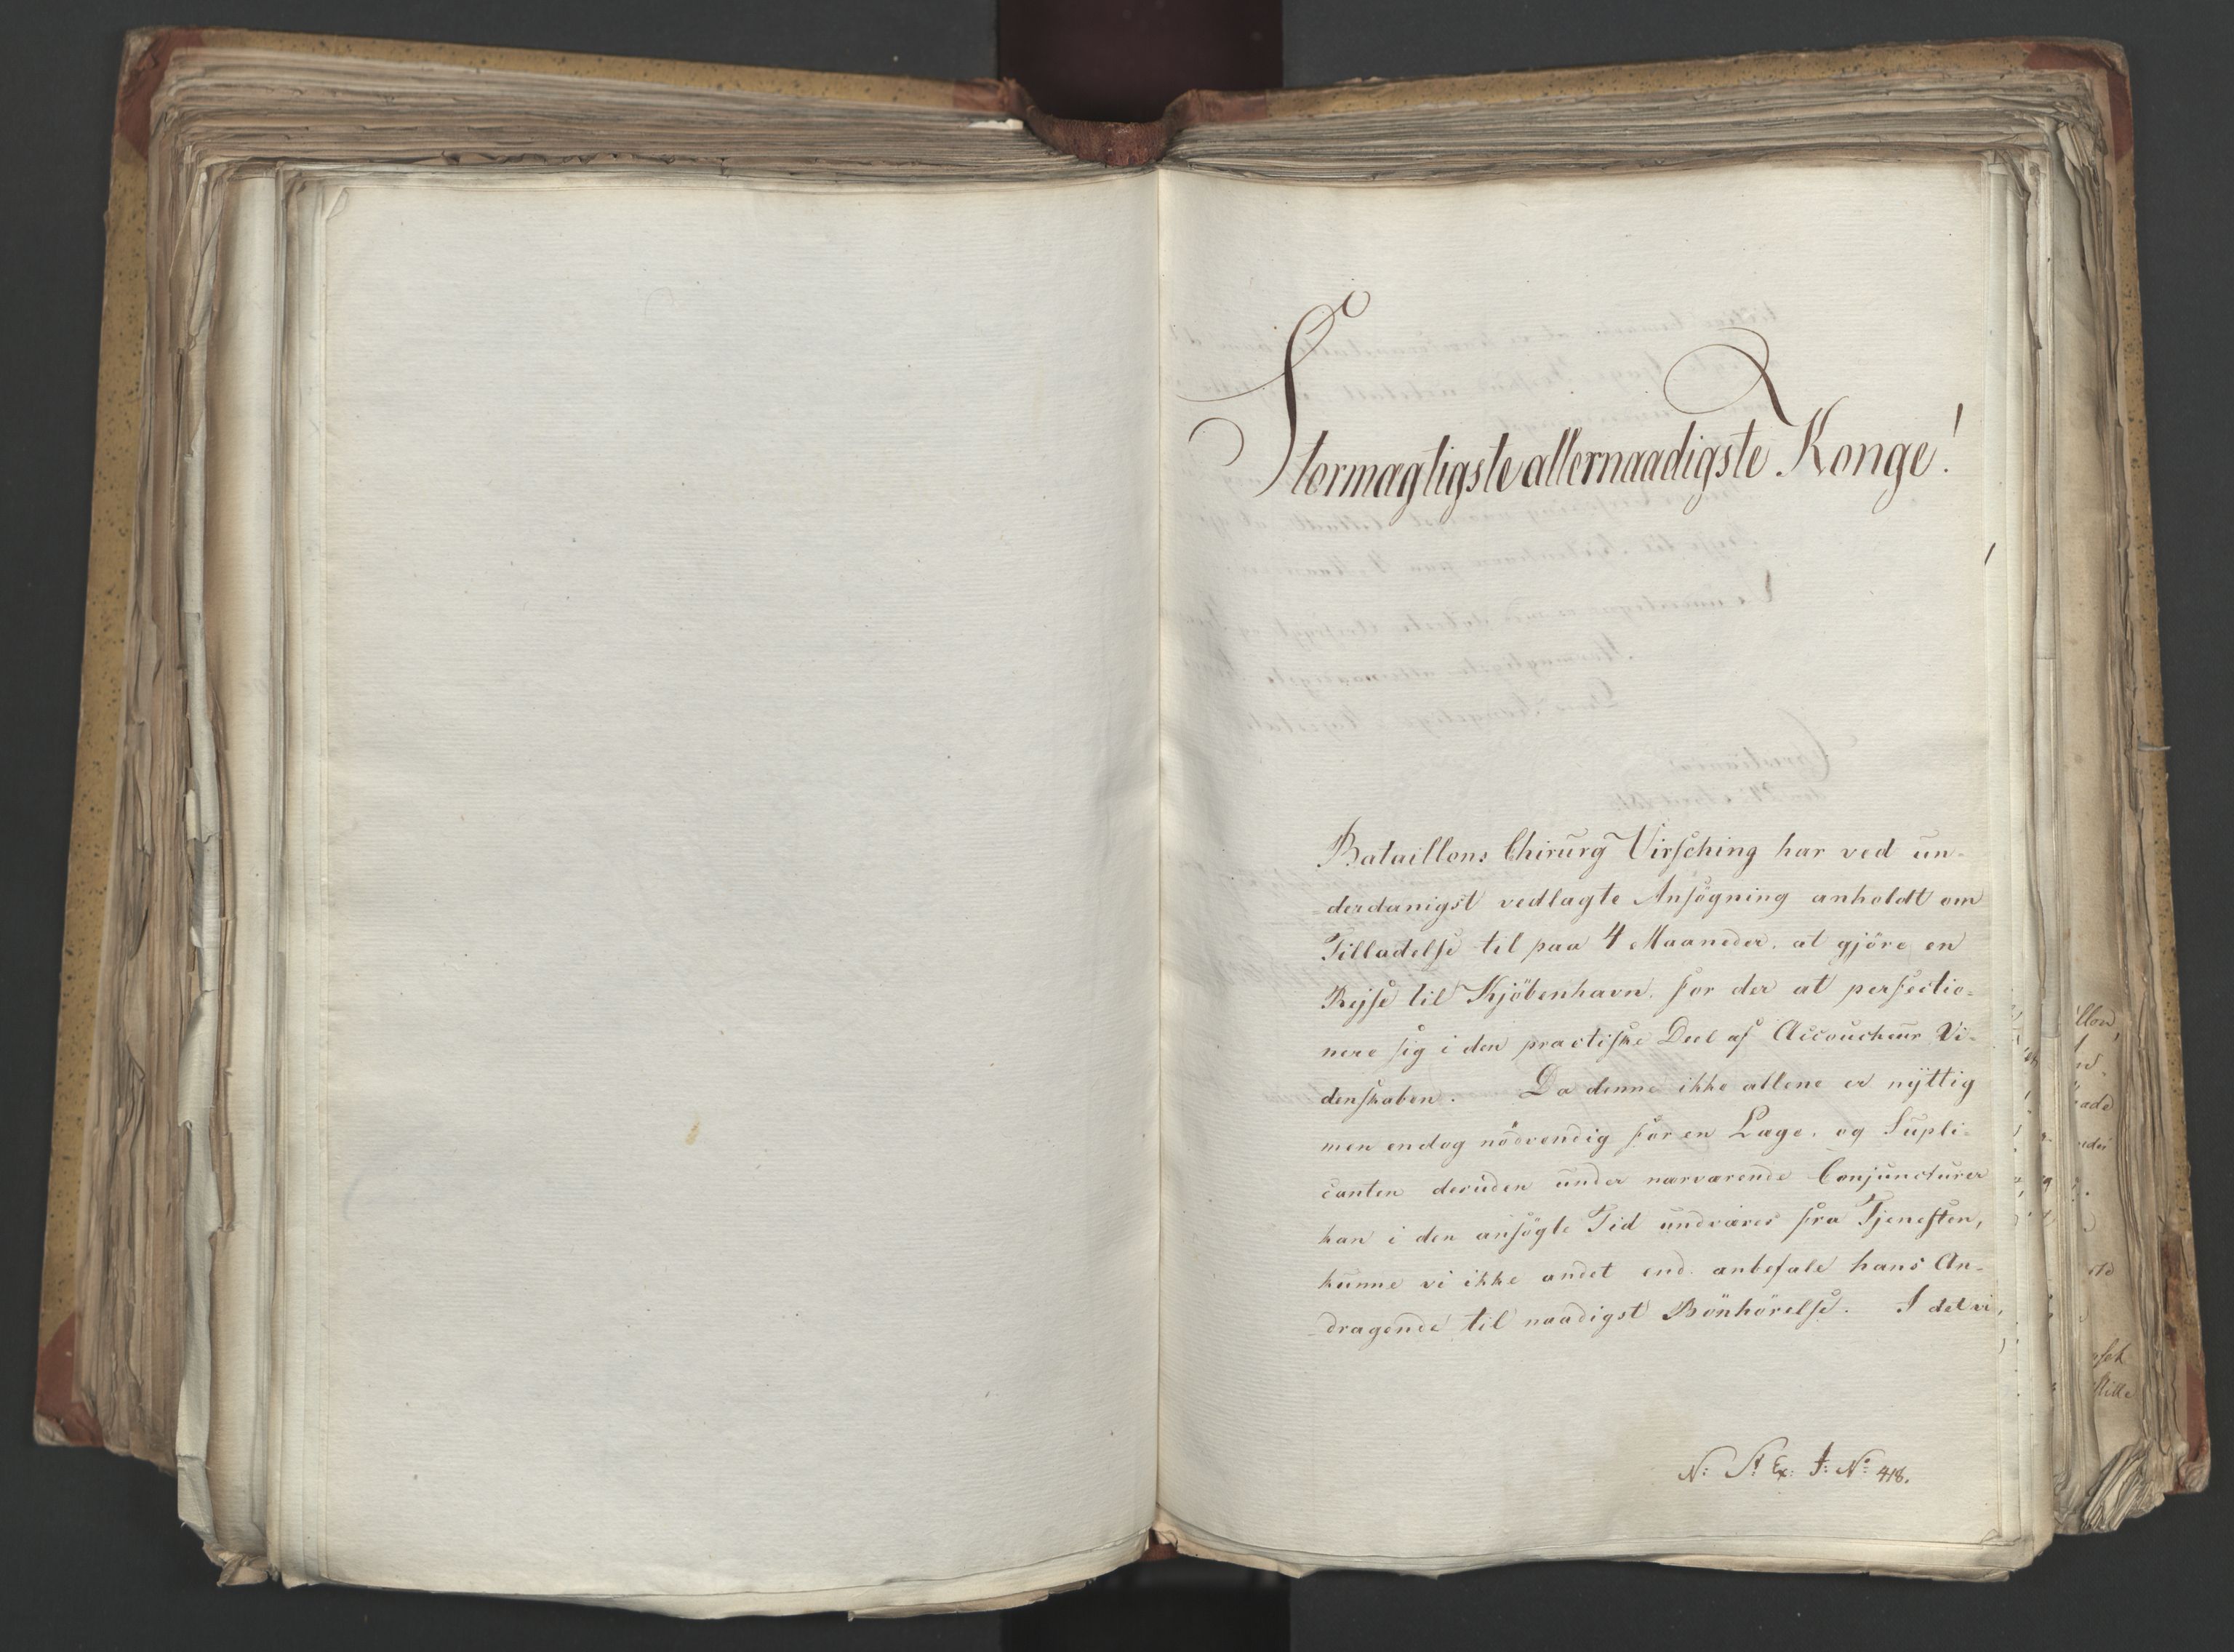 Stormagtigste allernaadigste Konge!
Bataillons Chirurg Virsching har ved un-
-derdanigst vedlagte Ansögning anholdt om
Tilladelse til paa 4 Maaneder, at gjöre en
Rejse til Kjöbenhavn, for der at perfectio-
nere sig i den practiske Deel af Accoucheur Vi-
denskaben. Da denne ikke allene er nyttig
men endog nödvendig for en Læge, og Supli-
canten desuden under nærværende Conjuncturer
kan i den ansögte Tid undværes fra Tjenesten,
kunne vi ikke andet end anbefale hans An-
-dragende til naadigst Bönhörelse. I det vi,
N: St Ex: J: No 418.